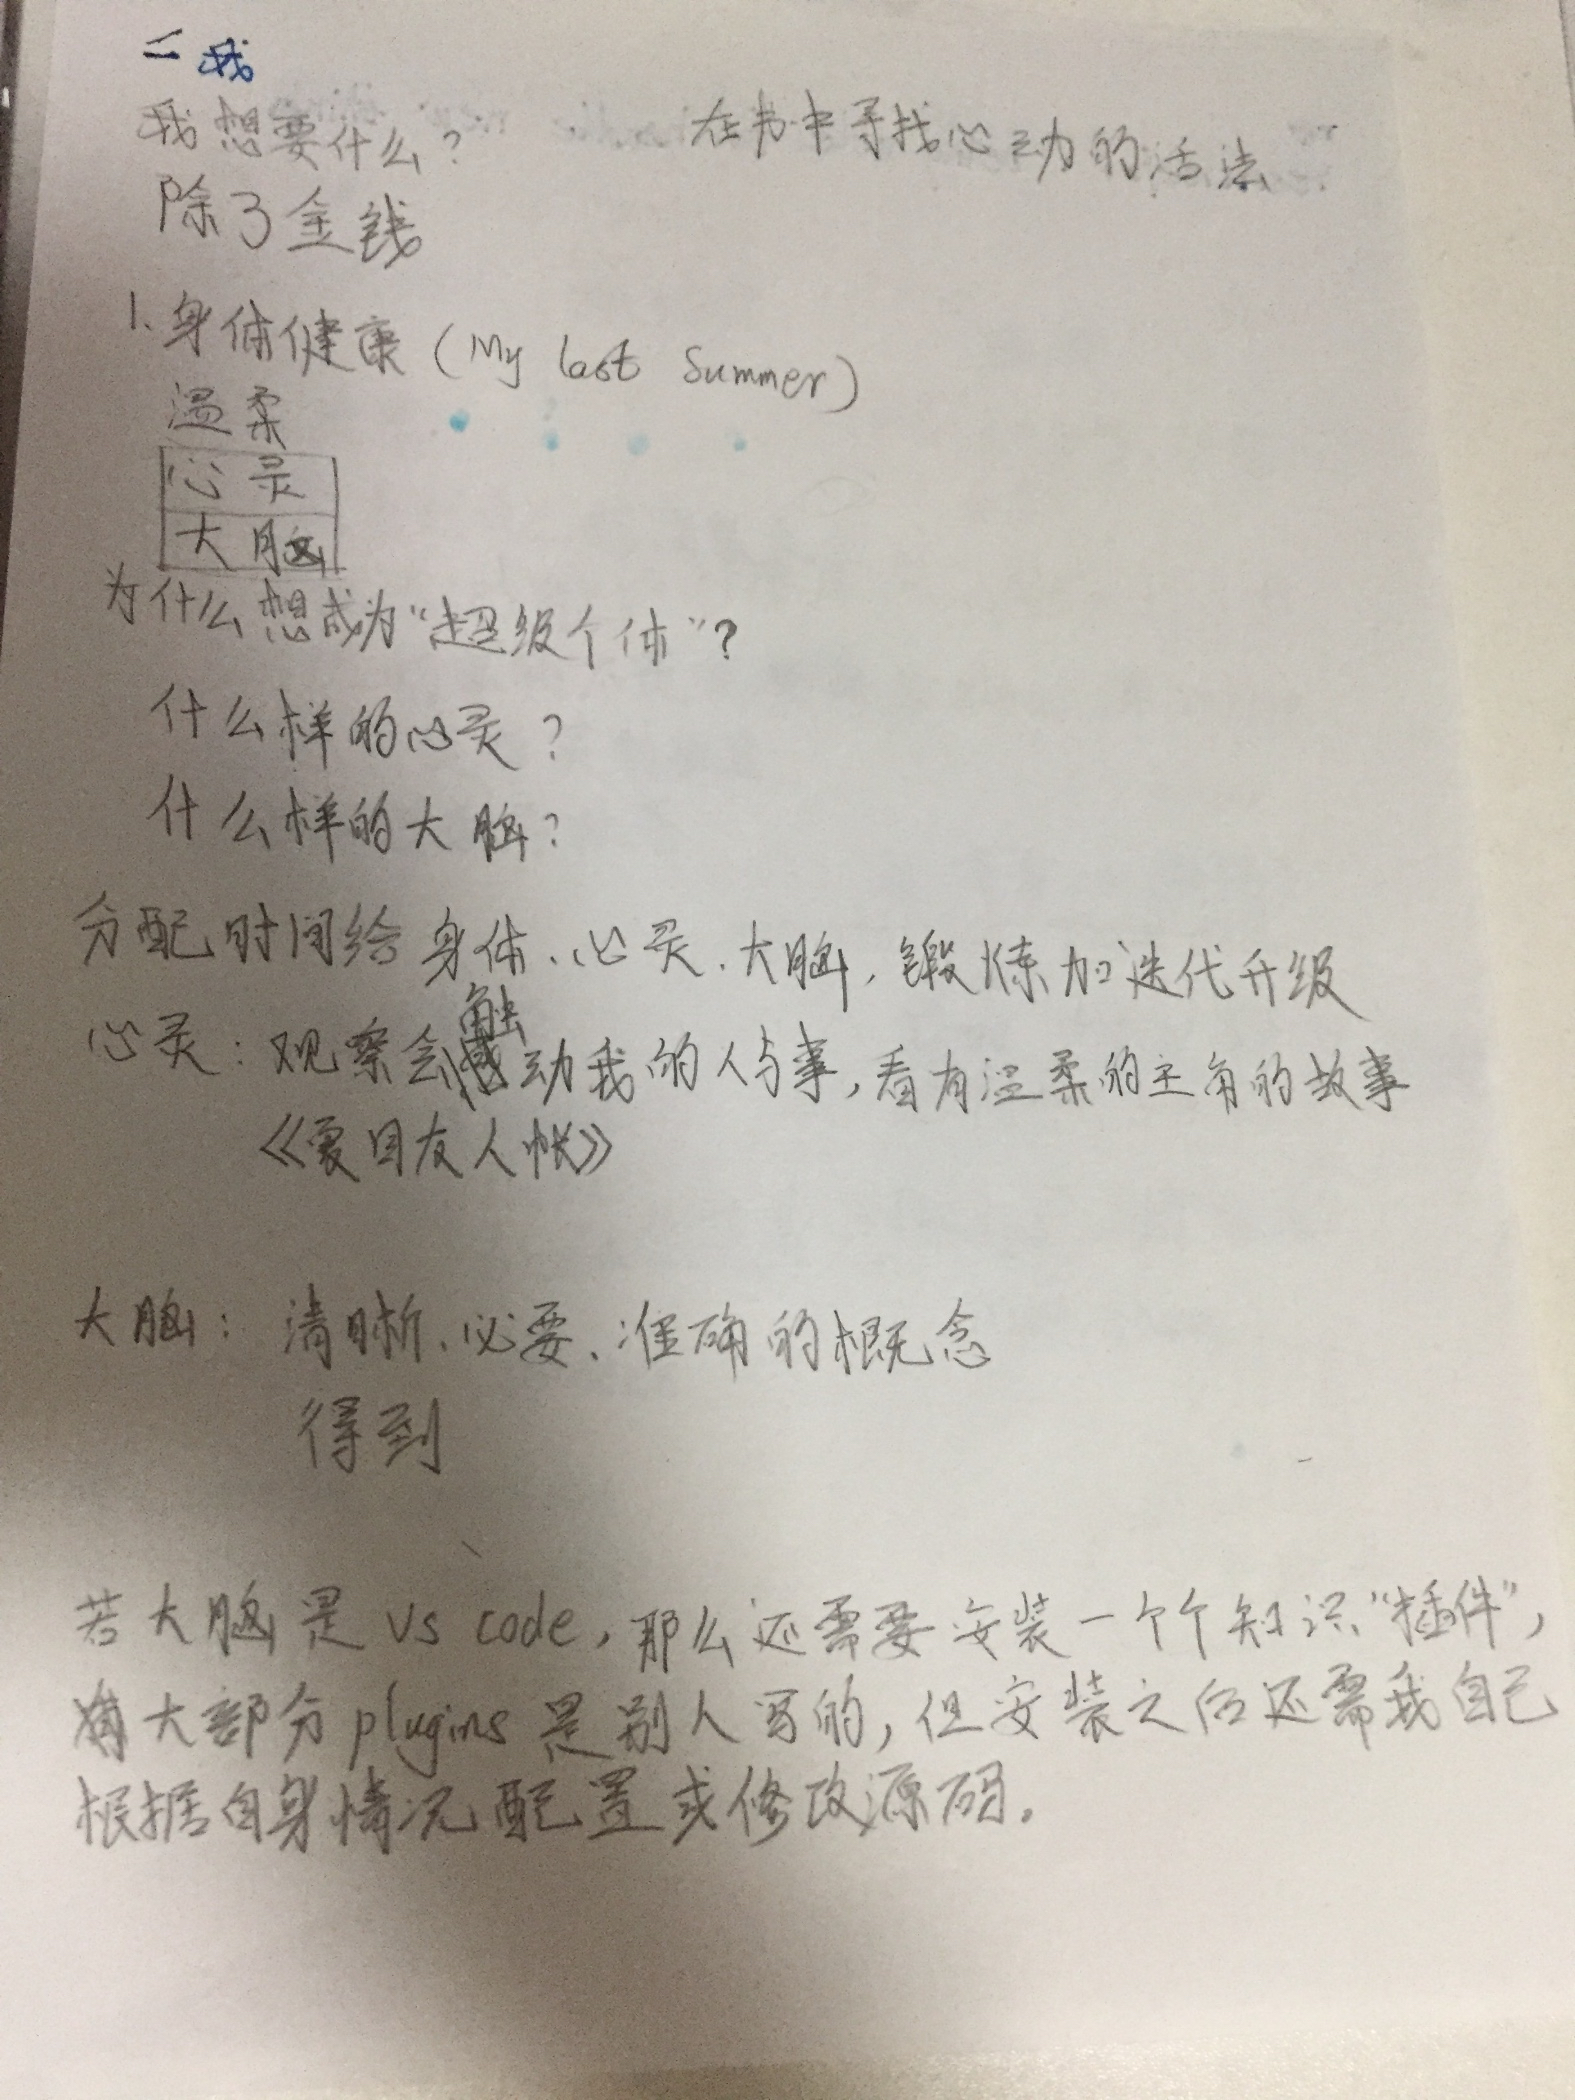 二 我
我想要什么?
在书中寻找心动的活法
除了金钱
1、身体健康 (My last Summer)
温柔
心灵
大脑
为什么想成为“超级个体”?
什么样的心灵?
什么样的大脑?
分配时间给身体、心灵、大脑,锻炼加迭代升级
心灵:观察会触动我的人与事,看有温柔的主角的故事
《夏目友人帐》
大脑:清晰、必要、准确的概念
得到
若大脑是 Vs code,那么还需要安装一个个知识“插件”,
大部分 plugins 是别人写的,但安装之后还需我自己
根据自身情况配置或修改源码。